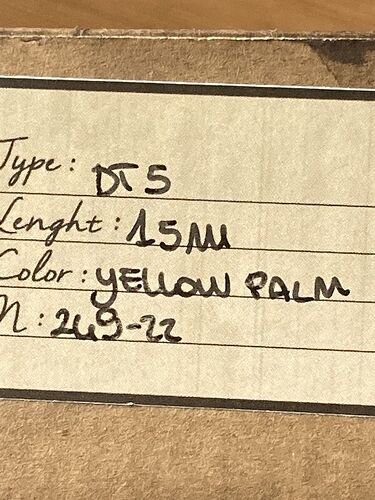 Type: DT5
Lenght: 15MM
Color: YELLOW PALM
N: 249-22